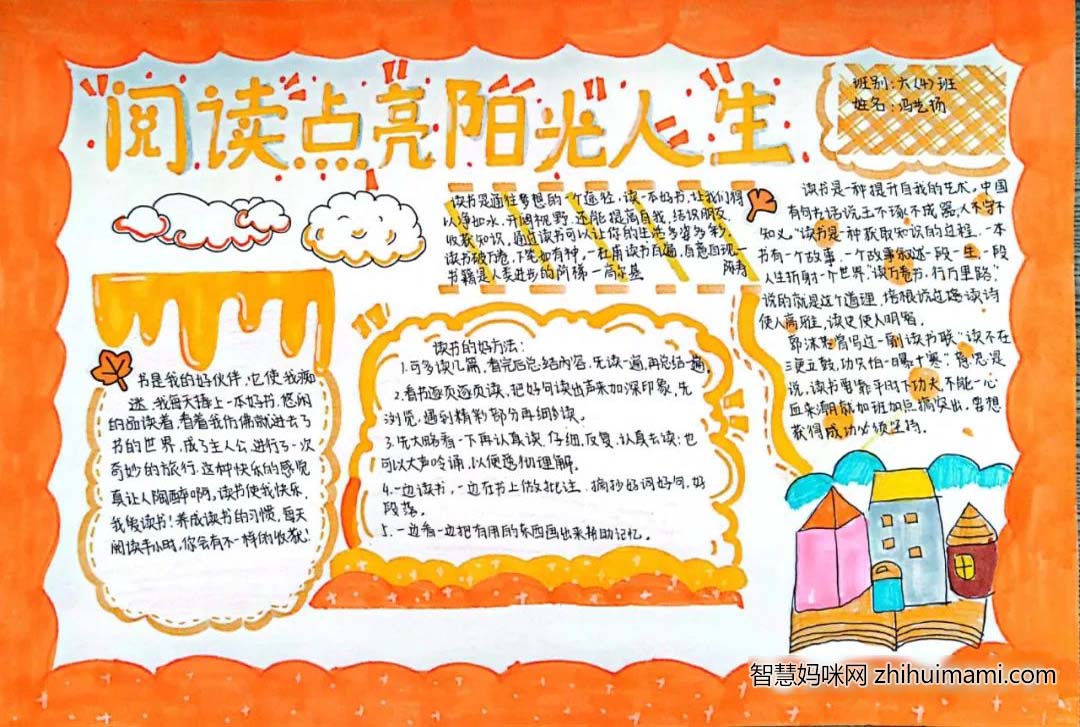 阅读点亮阳光人生
班别:六(4)班
姓名:冯艺扬
读书是通往梦想的一个途径,读一本好书,让我们得
以净如水,开阔视野,还能提高自我,结识朋友,
收获知识,通过读书可以让你的生活多姿多彩。
读书破万卷,下笔如有神。—杜甫 读书百遍,自意自现—
书籍是人类进步的阶梯—高尔基
读书是一种提升自我的艺术。中国
有句书话说玉不琢不成器,人不学不
知义。"读书是一种获取知识的过程。一本
书有一个故事,一个故事叙述一段一生,一段
人生折射一个世界。"读万卷书,行万里路。"
说的就是这个道理,培根说过读诗
使人高雅,读史使人明智。
郭沫若曾写过一副读书联"读不在
三更五鼓,功只怕一日暴十寒"意思是
说,读书要靠平时下功夫,不能一心
血来潮就加班加点搞突出,要想
获得成功必须坚持。
书是我的好伙伴,它使我痴
迷,我每天捧上一本好书,悠闲
的品读着,看着我仿佛就进去了
书的世界,成了主人公,进行了一次
奇妙的旅行,这种快乐的感觉
真让人陶醉啊,读书使我快乐,
我爱读书!养成读书的习惯,每天
阅读半小时,你会有不一样的收获!
读书的好方法:
1.可多读几篇,看完后总结内容,先读一遍,再总结一遍。
2.看书逐页逐页读,把好句读出声来加深印象,先
浏览,遇到精彩部分再细读。
3.先大略看一下再认真读,仔细,反复,认真去读;也
可以大声吟诵,以便透彻理解。
4.一边读书,一边在书上做批注、摘抄好词好句,好
段落。
5.一边看一边把有用的东西画出来帮助记忆。
智慧妈咪网 zhihuimami.com